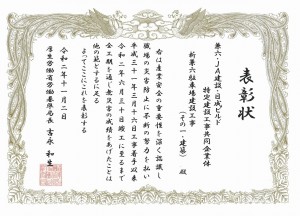 表彰状
兼六・JA建設・日成ビルド
特定建設工事共同企業体
新兼六駐車場建設工事
(その一・建築) 殿
右は産業安全の重要性を深く認識し
職場の災害防止に不断の努力を払い
平成三十一年三月十八日工事着手以来
令和二年六月三十日竣工に至るまで
全工期を通じ無災害の成績をあげたことは
他の範とするに足る
よってここにこれを表彰する
令和二年十一月二日
厚生労働省労働基準局長 吉永和生